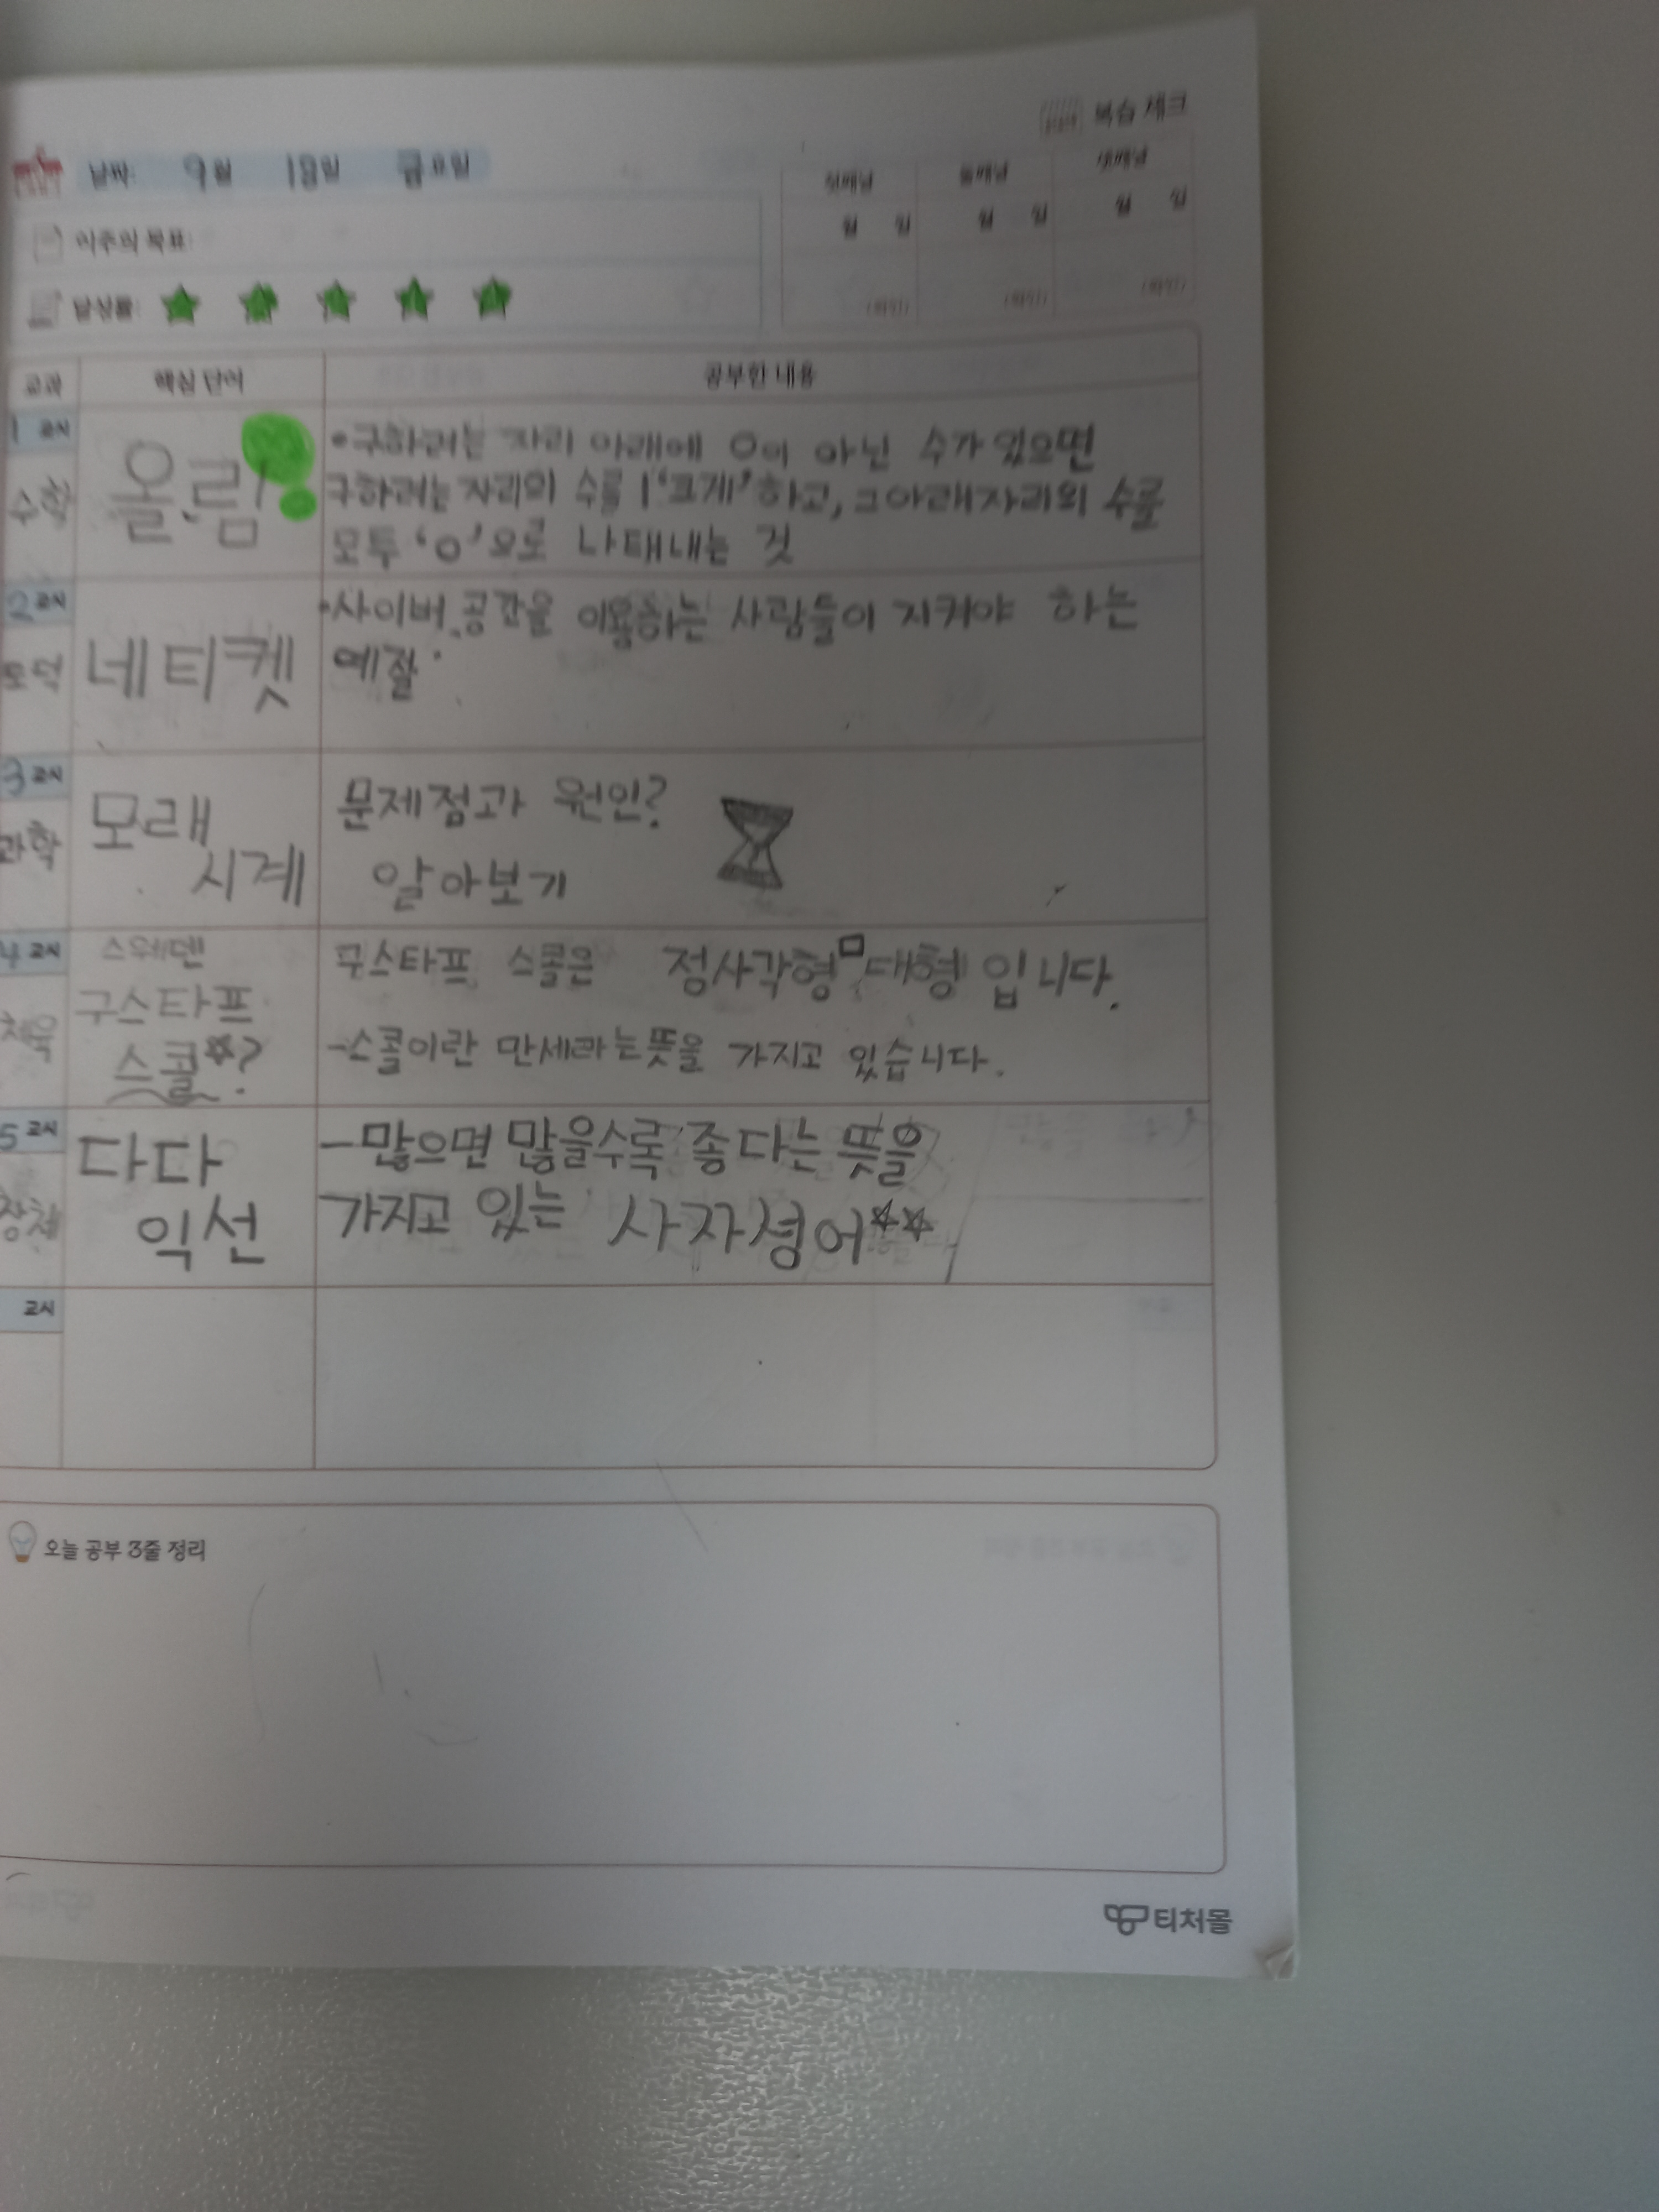 복습 체크
날짜: 9월 18일 금요일
첫째날 둘째날 셋째날
월 일 월 일 월 일
이주의 목표:
달성률:
(확인) (확인) (확인)
교과 핵심 단어 공부한 내용
1 교시
수학
올림!
•구하려는 자리 아래에 0이 아닌 수가 있으면
구하려는 자리의 수를 1 '크게' 하고, 그 아래 자리의 수를
모두 '0'으로 나태내는 것
2 교시
도덕
네티켓
•사이버 공간을 이용하는 사람들이 지켜야 하는
예절.
3 교시
과학
모래
시계
문제점과 원인?
알아보기
4 교시
체육
스웨덴
구스타프
스콜☆?
구스타프 스콜은 정사각형□대형 입니다.
-스콜이란 만세라는 뜻을 가지고 있습니다.
5 교시
창체
다다
익선
-많으면 많을수록 좋다는 뜻을
가지고 있는 사자성어☆☆
교시
오늘 공부 3줄 정리
티처몰